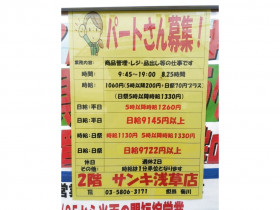 パートさん募集!
業務内容: 商品管理・レジ・品出し等の仕事です
時間: 9:45〜19:00 8.25時間
時給: 1060円(5時以降200円・日祭70円プラス)
(日祭5時以降時給1330円)
日給:平日 5時以降時給1260円
日給:平日 日給9145円以上
時給:日祭 時給1130円 5時以降1330円
日給:日祭 日給9722円以上
休日 週休2日
その他: 時給は1分単位となります
2階 サンキ浅草店
☎03-5806-3171 担当